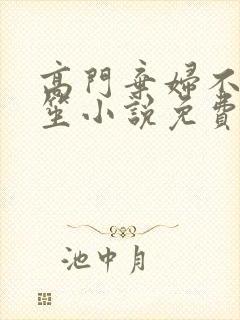 高門棄婦不
笙小說免費
池中月